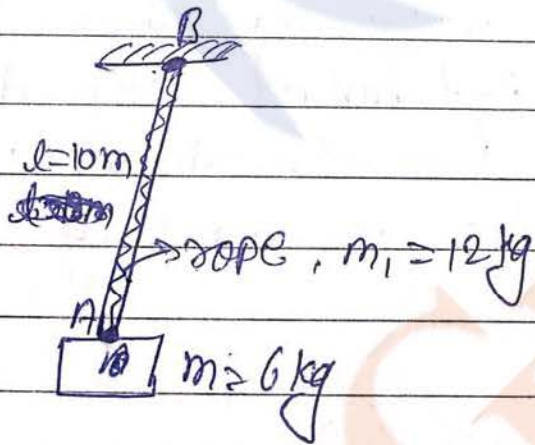 B
l=10m
rope, m₁ = 12 kg
A
m = 6 kg